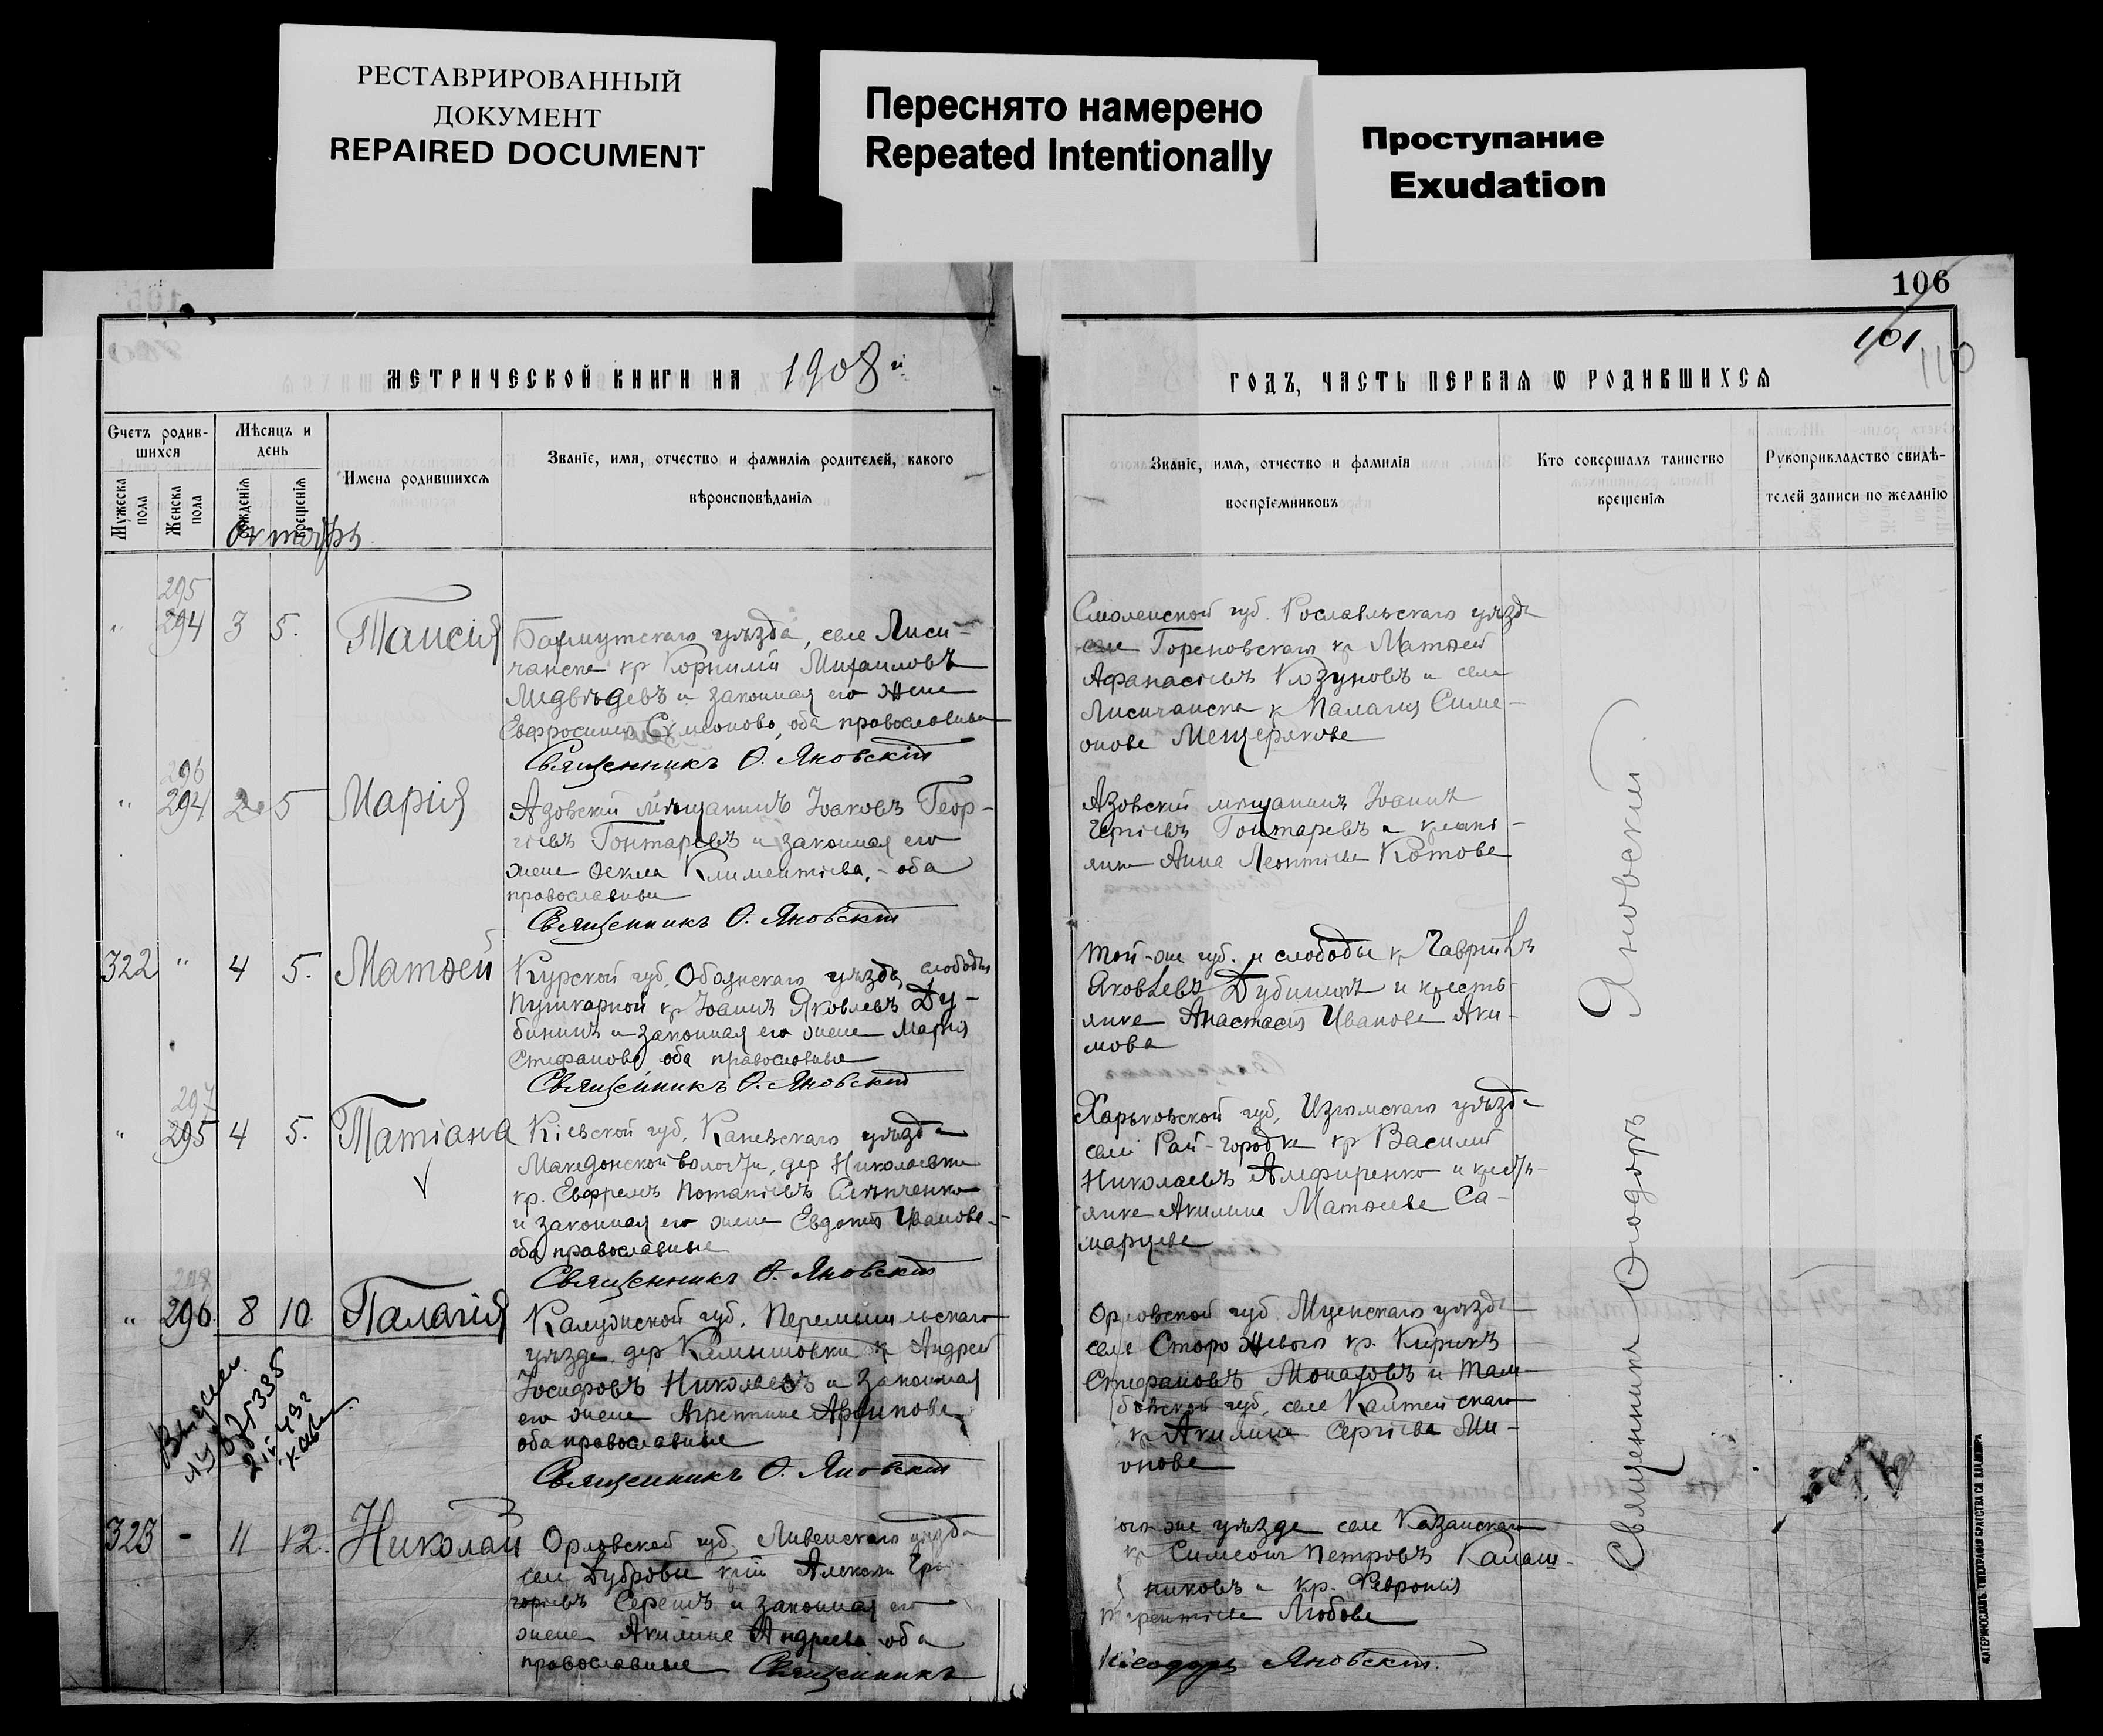 РЕСТАВРИРОВАННЫЙ
ДОКУМЕНТ
REPAIRED DOCUMENT
Переснято намерено
Repeated Intentionally
Проступание
Exudation
106
101
110
МЕТРИЧЕСКОЙ КНИГИ НА 1908 й
ГОДЪ, ЧАСТЬ ПЕРВАЯ Ѡ РОДИВШИХСЯ
Счетъ родив-
шихся
Мужеска
пола
Женска
пола
Мѣсяцъ и
день
рожденія
крещенія
Имена родившихся
Званіе, имя, отчество и фамилія родителей, какого
вѣроисповѣданія
Званіе, имя, отчество и фамилія
воспріемниковъ
Кто совершалъ таинство
крещенія
Рукоприкладство свидѣ-
телей записи по желанію
Октябрь
295
" 294 3 5. Таисія
Бахмутскаго уѣзда, села Лиси-
чанска кр Корнилій Михаиловъ
Медвѣдевъ и законная его жена
Евфросинія Симеонова, оба православные
Священникъ Ѳ. Яновскій
Смоленской губ. Рославльскаго уѣзда
села Гореновскаго кр Матѳей
Афанасіевъ Козуновъ и села
Лисичанска к Палагія Симе-
онова Мещерякова
296
" 294 2 5 Марія
Азовскій мѣщанинъ Іоаковъ Геор-
гіевъ Гонтаревъ и законная его
жена Ѳекла Климентіева, - оба
православные
Священникъ Ѳ. Яновскій
Азовскій мѣщанинъ Іоаннъ
Гонтаревъ и крестья-
нка Анна Леонтіева Котова
322 " 4 5. Матѳей
Курской губ, Обоянскаго уѣзда, слободы
Пушкарной кр Іоаннъ Яковлевъ Ду-
бининъ и законная его жена Марія
Стефанова оба православные
Священникъ Ѳ. Яновскій
Той-же губ. и слободы к Гавріилъ
Яковлевъ Дубининъ и кресть-
янка Анастасія Иванова Аки-
мова
297
" 295 4 5. Татіана
Кіевской губ, Каневскаго уѣзда
Македонской волости, дер Николаевки
кр. Ефремъ Потапіевъ
и законная его жена Евдокія Иванова-
оба православные
Священникъ Ѳ. Яновскій
Харьковской губ, Изюмскаго уѣзда
села Рай-городка кр Василій
Николаевъ Алфиренко и кресть-
янка Акилина Матѳеева Са-
марцева
298
" 296. 8 10. Палагія
Калужской губ. Перемышльскаго
уѣзда, дер Камышовки к Андрей
Іосифовъ Николаевъ и законная
его жена Агрепина Архипова
оба православные
Священникъ Ѳ. Яновскій
Орловской губ Мценскаго уѣзда
села Сторожеваго кр. Кирикъ
Стефановъ Монаховъ и Там-
бовской губ, села
кр Акилина Сергіева Ми-
онова
323 - 11 12. Николай
Орловской губ, Ливенскаго уѣзда
села Дубровы кр Алексій Гри-
горіевъ Серегинъ и законная его
жена Акилина Андреева оба
православные Священникъ
ого же уѣзда села Казанскаго
кр Симеонъ Петровъ Калаш-
никовъ и кр. Февронія
Любова
Ѳеодоръ Яновскій.
Священникъ Ѳеодоръ Яновскій.
ЕКАТЕРИНОСЛАВЪ. ТИПОГРАФІЯ БРАТСТВА СВ. ВЛАДИМІРА